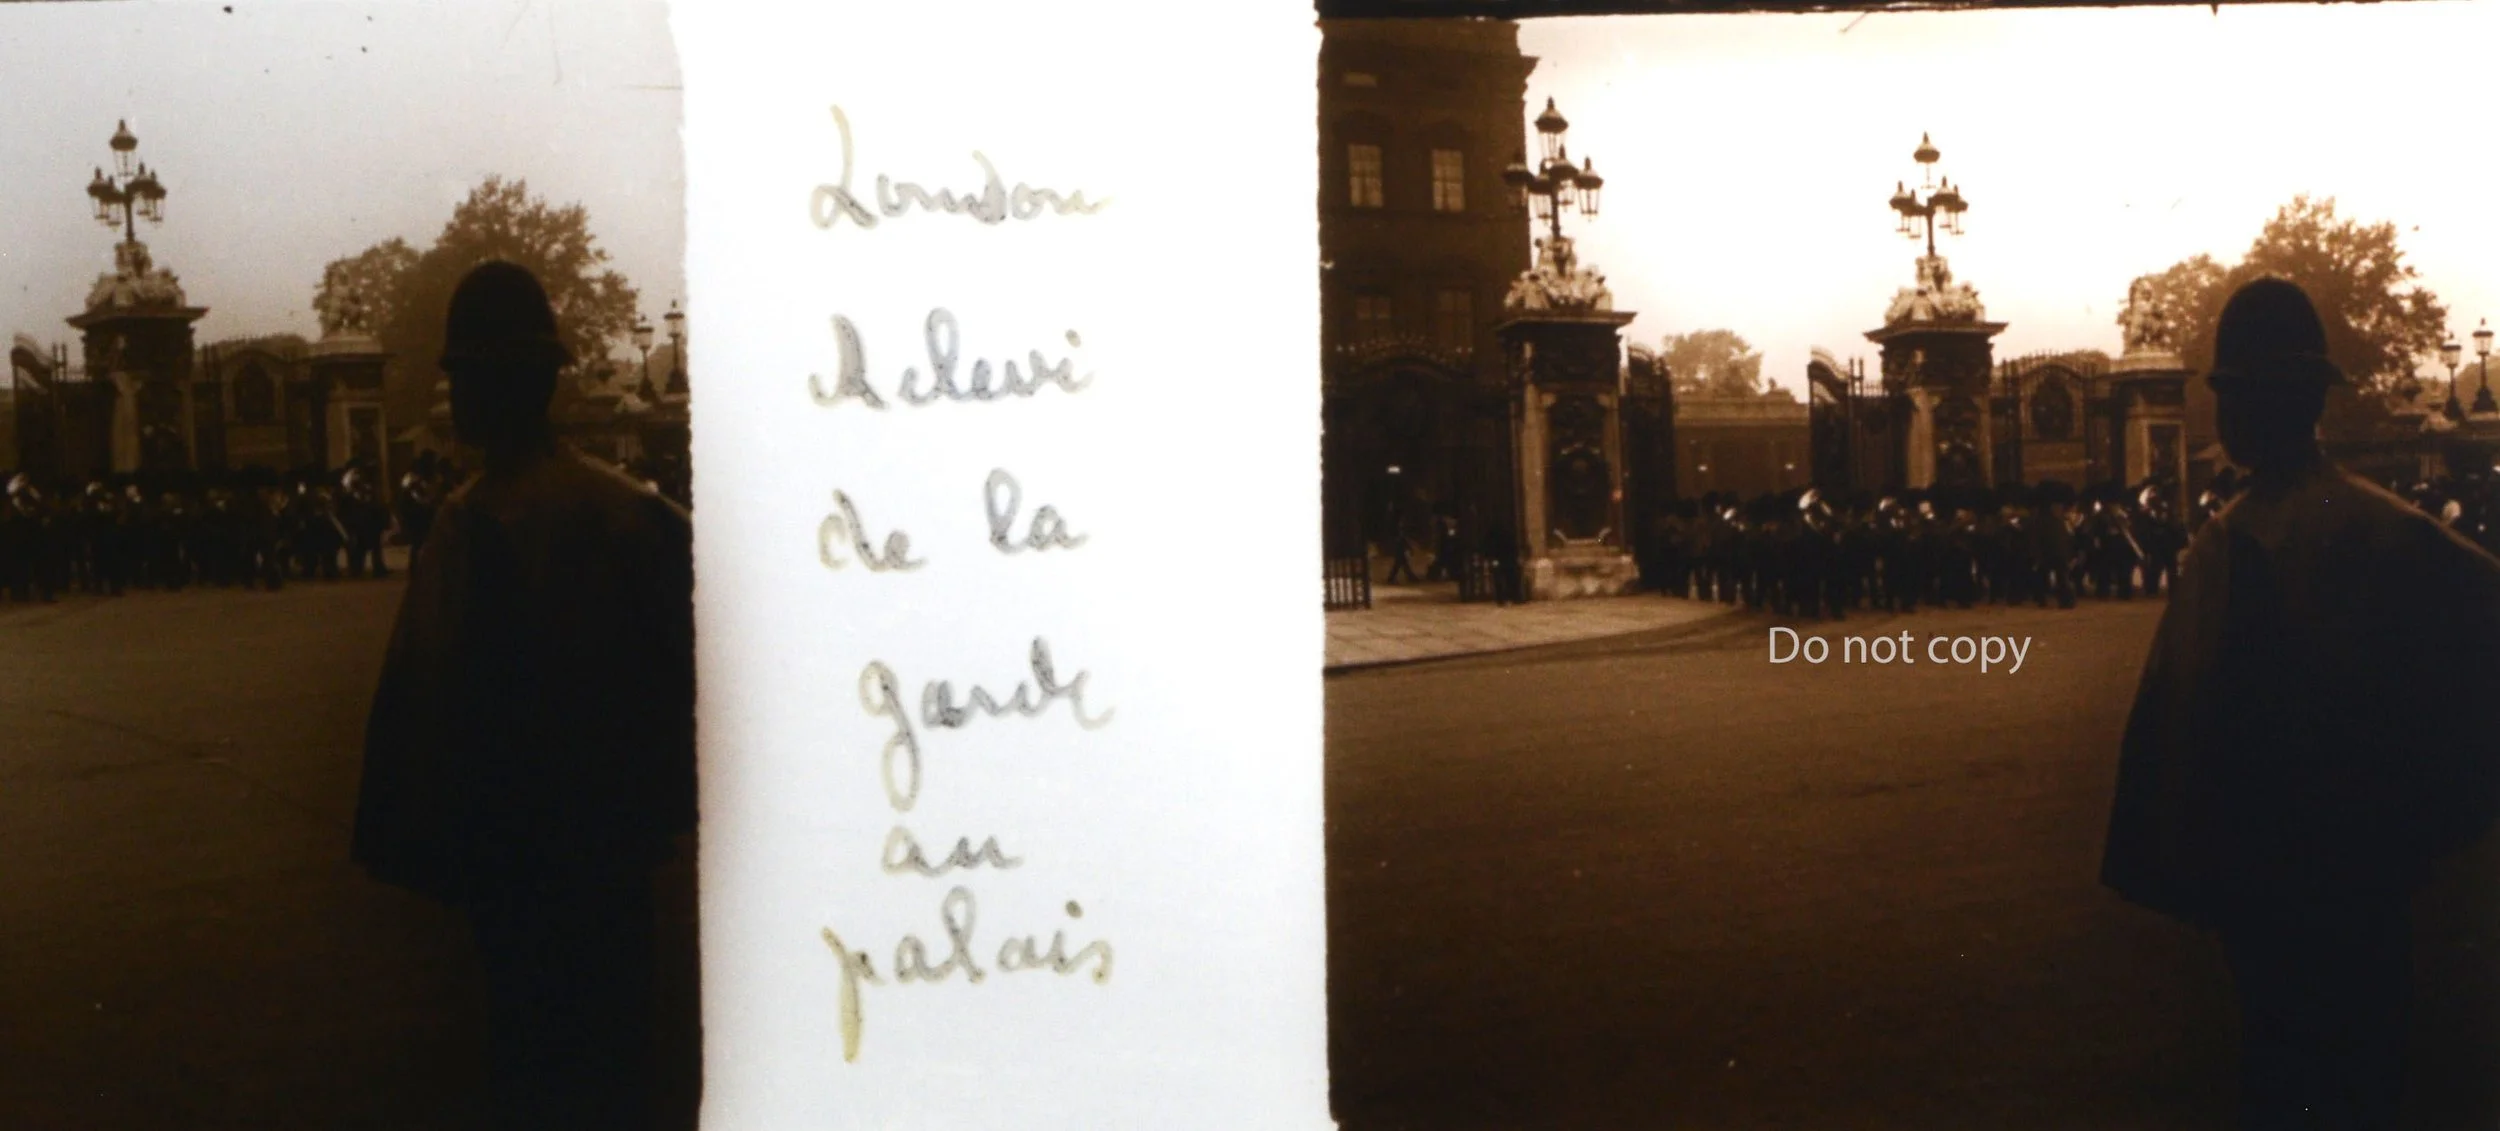 London
Relevi
de la
garde
au
palais
Do not copy